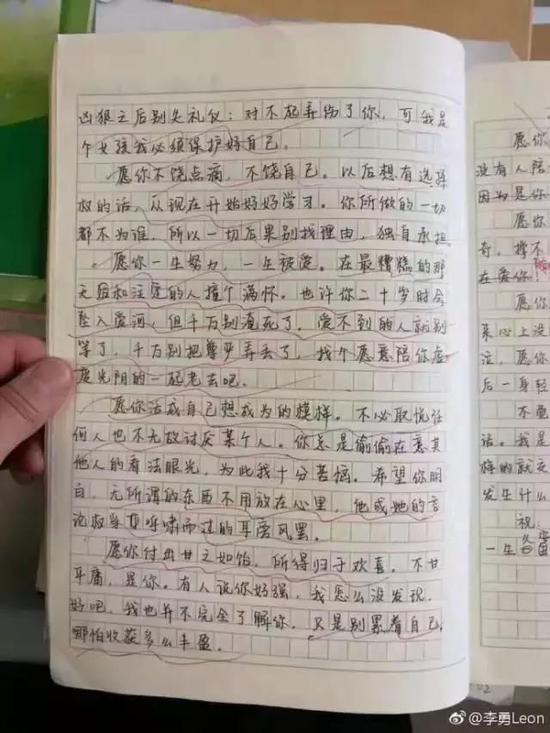 凶狠之后别失礼仪：对不起弄伤了你，可我是
个女孩我必须保护好自己。
愿你不饶点滴，不饶自己。以后想有选择
权的话，从现在开始好好学习。你所做的一切
都不为谁，所以一切后果别找理由，独自承担。
愿你一生努力，一生被爱。在最糟糕的那
天后和注定的人撞个满怀。也许你二十岁时会
坠入爱河，但千万别淹死了，爱不到的人就别
等了，千万别把尊严弄丢了，找个愿意陪你虚
度光阴的一起老去吧。
愿你活成自己想成为的模样。不必取悦任
何人也不无故讨厌某个人。你总是偷偷在意其
他人的看法眼光，为此我十分苦恼。希望你明
白，无所谓的东西不用放在心里，他或她的言
论权当耳呼啸而过的耳旁风罢。
愿你付出甘之如饴，所得归于欢喜。不甘
平庸，是你。有人说你好强，我怎么没发现，
好吧，我也并不完全了解你。只是别累着自己，
哪怕收获多么丰盈。
愿你
没有人陪
因为是你
愿你
奇，撑不
在爱你
愿你
某心上没
注，愿你
后一身轻
不要
话。我是
择的就交
发生什么
祝：
一生
@李勇Leon